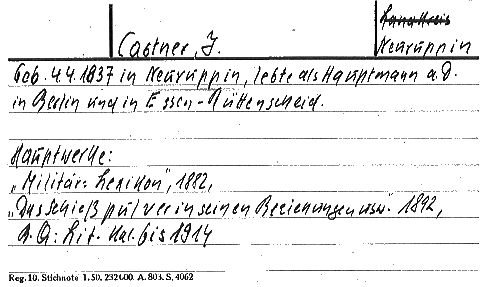 Landkreis
Castner, J.
Neuruppin
Geb. 4.4.1837 in Neuruppin, lebte als Hauptmann a.D.
in Berlin und in Essen-Rüttenscheid.
Hauptwerke:
„Militär-Lexikon", 1882,
„Das Schießpulver in seinen Beziehungen usw. 1892,
A.Q: Lit. Kal. bis 1914
Reg. 10. Stichnote 1. 50. 232600. A. 803. S. 4062